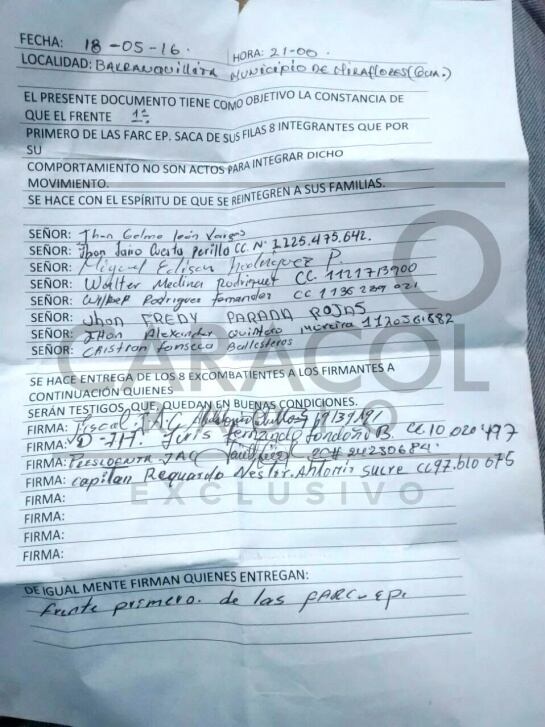 FECHA: 18-05-16. HORA: 21-00.
LOCALIDAD: BARRANQUILLITA MUNICIPIO DE MIRAFLORES (GUA.)
EL PRESENTE DOCUMENTO TIENE COMO OBJETIVO LA CONSTANCIA DE
QUE EL FRENTE 1º
PRIMERO DE LAS FARC EP. SACA DE SUS FILAS 8 INTEGRANTES QUE POR
SU
COMPORTAMIENTO NO SON ACTOS PARA INTEGRAR DICHO
MOVIMIENTO.
SE HACE CON EL ESPÍRITU DE QUE SE REINTEGREN A SUS FAMILIAS.
SEÑOR: Jhon Gelmo león Vargas
SEÑOR: Jhon Jairo Cuesta perilla CC. Nº 1125.475.642.
SEÑOR: Miguel Edison P.
SEÑOR: Walter Medina Rodriguet CC. 1121713900
SEÑOR: Rodriguez fernandez CC 1136 021
SEÑOR: Jhon FREDY PARADA ROJAS
SEÑOR: JHON Alexander Quintero 1120361882
SEÑOR: CRistian fonseca Ballesteros
SE HACE ENTREGA DE LOS 8 EXCOMBATIENTES A LOS FIRMANTES A
CONTINUACIÓN QUIENES
SERÁN TESTIGOS, QUE QUEDAN EN BUENAS CONDICIONES.
FIRMA: Fiscal JAC
FIRMA: D-JH. Luis fernando Londoño B. CC 10 020 497
FIRMA: Presidenta JAC
FIRMA: capitan Reguardo Nestor. Antonio sucre CC 97.610 675
FIRMA:
FIRMA:
FIRMA:
FIRMA:
DE IGUAL MENTE FIRMAN QUIENES ENTREGAN:
frente primero. de las FARC-EP.
CARACOL
RADIO
EXCLUSIVO